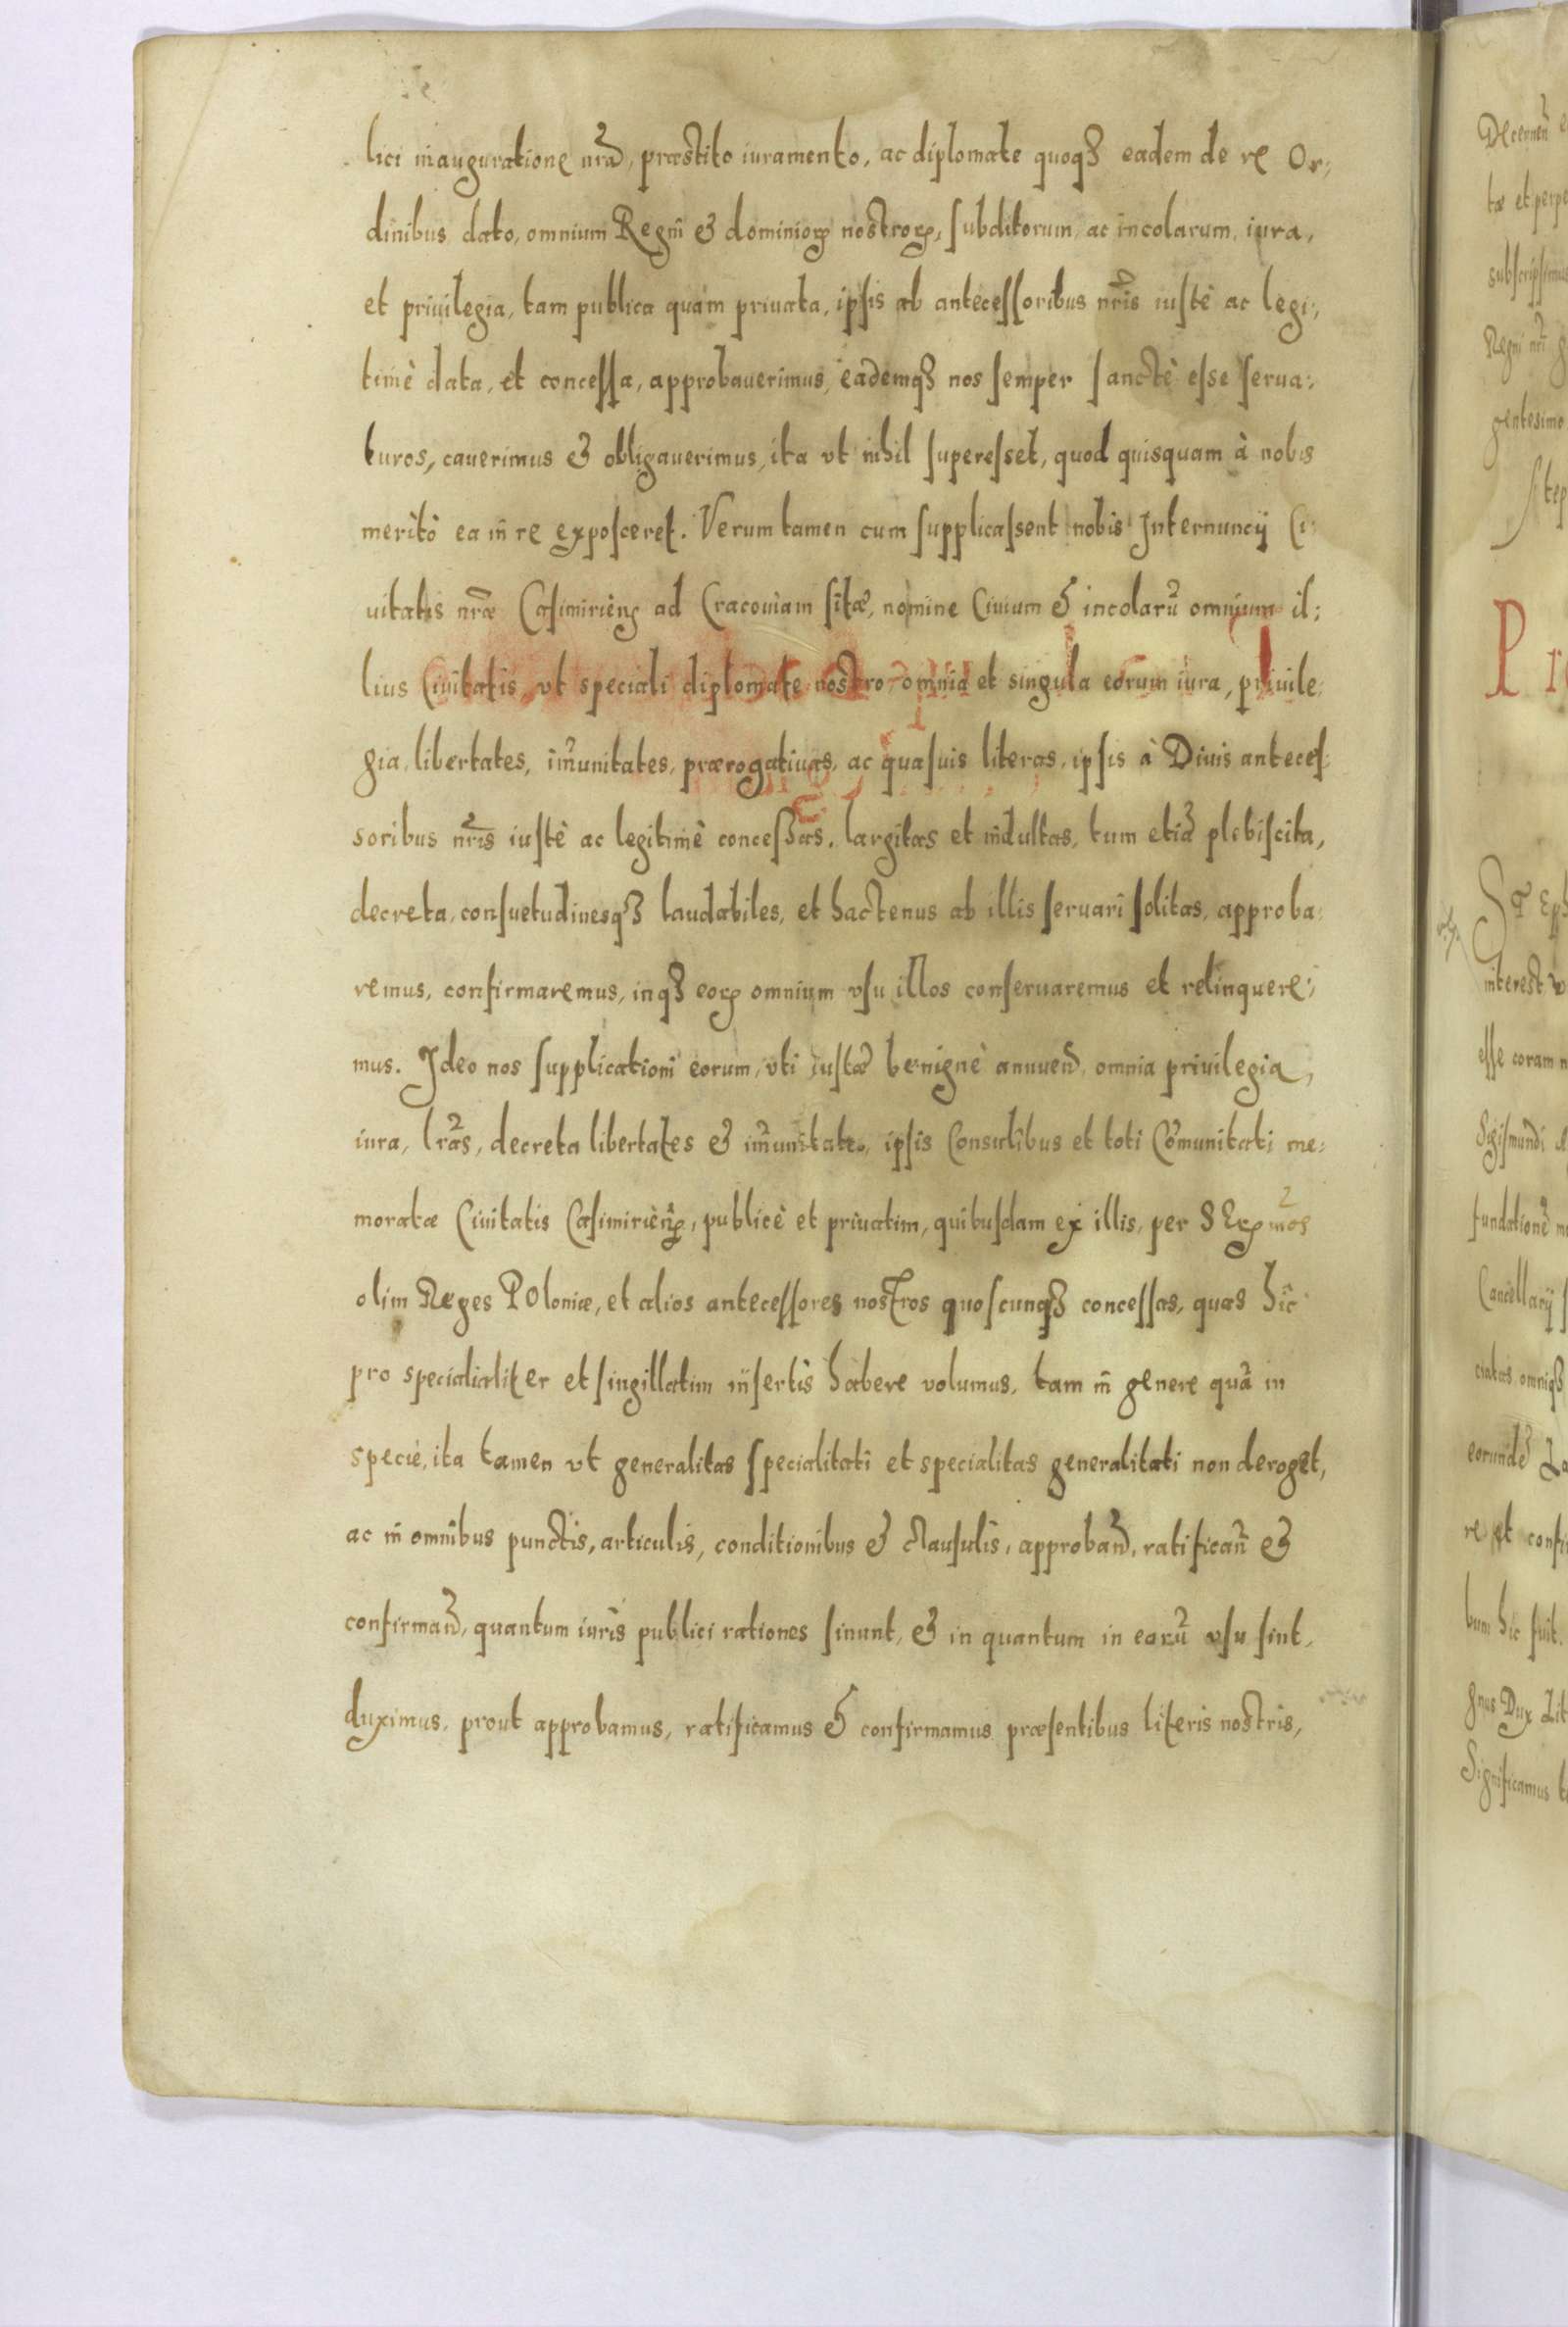 lici inauguratione nr̃a, præstito iuramento, ac diplomate quoqȝ eadem de re Or,
dinibus dato, omnium Regni & dominioꝝ nostroꝝ, subditorum ac incolarum, iura,
et priuilegia, tam publica quam priuata, ipsis ab antecessoribus nr̃is iustè ac legi,
timè data, et concessa, approbauerimus, eademqȝ nos semper sanctè esse serua,
turos, cauerimus & obligauerimus, ita vt nihil superesset, quod quisquam à nobis
meritò ea in re exposceret. Verum tamen cum supplicassent nobis Internuncij Ci
uitatis nr̃æ Casimirien̄ ad Cracouiam sitæ, nomine Ciuium & incolarū omnium il:
lius Ciuitatis, vt speciali diplomate nostro omnia et singula eorum iura, priuile:
gia, libertates, im̄unitates, prærogatiuas, ac quasuis literas, ipsis à Diuis anteces:
soribus nr̃is iustè ac legitimè conceßas, largitas et indultas, tum etiā plebiscita,
decreta, consuetudinesqȝ laudabiles, et hactenus ab illis seruari solitas, approba:
remus, confirmaremus, inqȝ eoꝝ omnium vsu illos conseruaremus et relinquere:
mus. Ideo nos supplicationi eorum, vti iustæ benignè annuen̄, omnia priuilegia,
iura, lr̃as, decreta libertates & im̄unitates, ipsis Consulibus et toti Com̄unitati me:
moratæ Ciuitatis Casimirien̄, publicè et priuatim, quibusdam ex illis, per S Eꝝ mos
olim Reges Poloniæ, et alios antecessores nostros quoscunqȝ concessas, quas hîc
pro specialiter et singillatim insertis habere volumus, tam in genere quā in
specie, ita tamen vt generalitas specialitati et specialitas generalitati non deroget,
ac in omnibus punctis, articulis, conditionibus & clausulis, approban̄, ratifican̄ &
confirman̄, quantum iuris publici rationes sinunt, & in quantum in eorū vsu sint,
duximus, prout approbamus, ratificamus & confirmamus præsentibus literis nostris,